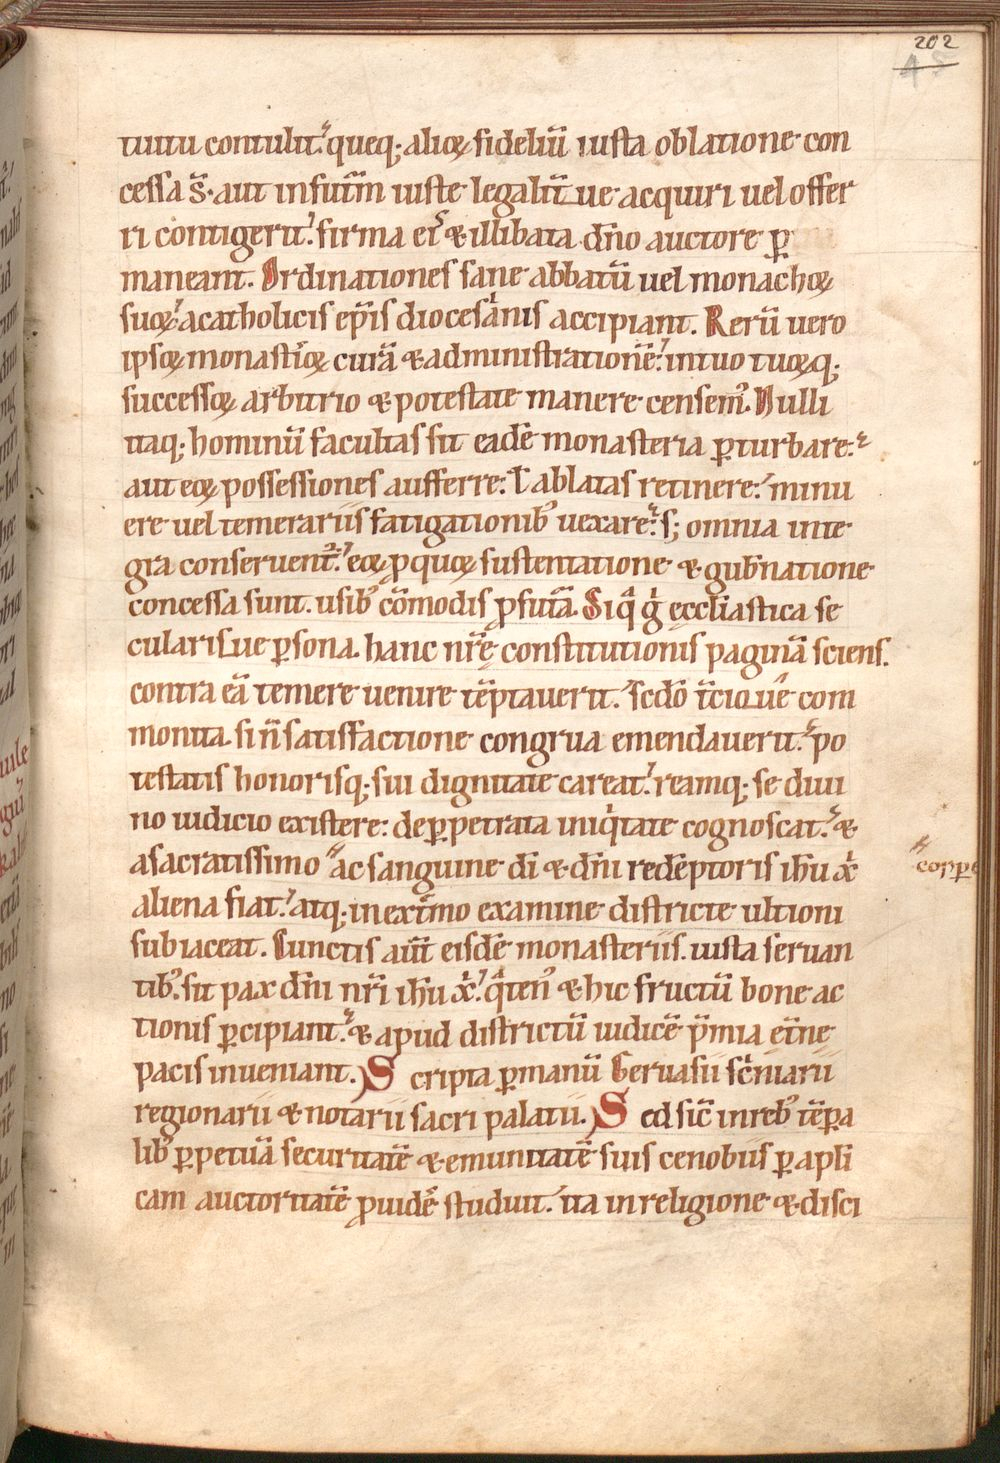 202
45
tuitu contulit. queq; alioꝝ fideliū iusta oblatione con
cessa s̄. aut in futm̄ iuste legalit̄ ue acquiri uel offer
ri contigerit. firma ei᷒ & illibata dn̄o auctore ꝑ
maneant. Ordinationes sane abbatū uel monachoꝝ
suoꝝ. a catholicis ep̄is diocesanis accipiant. Rerū uero
ipsoꝝ monast̄ioꝝ curā & administrationē. in tuo tuoꝝq;
successoꝝ arbitrio & potestate manere censem᷒. Nulli
itaq; hominū facultas sit eadē monasteria ꝑturbare.
aut eoꝝ possessiones aufferre: ł ablatas retinere: minu
ere uel temerariis fatigationib᷒ uexare. s; omnia inte
gra conseruent᷑. eoꝝ ꝓ quoꝝ sustentatione & gub̄natione
concessa sunt. usib᷒ cōmodis ꝓfut̄a. Siqͣ gͥ ecclīastica se
cularisue ꝑsona. hanc nr̄ę constitutionis paginā sciens.
contra eā temere uenire tēptauerit. scdō t̄cioue com
monita. si n̄ satisfactione congrua emendauerit. po
testatis honorisq; sui dignitate careat. reamq; se diui
no iudicio existere: de ꝑpetrata iniqͥtate cognoscat. &
a sacratissimo ac sanguine dī & dn̄i redēptoris ih̄u xͥ
corpore
aliena fiat. atq; in ext̄mo examine districte ultioni
subiaceat. Cunctis aūt eisdē monasteriis. iusta seruan
tib᷒. sit pax dn̄i nr̄i ih̄u xͥ. qͣten᷒ & hic fructū bone ac
tionis ꝑcipiant. & apud districtū iudicē p̄mia et̄nę
pacis inueniant. Scripta ꝑ manū Geruasii sc̄niarii
regionarii & notarii sacri palatii. Sed sic̄ in reb᷒ tēꝑa
lib᷒ ꝑpetuā securitatē & emunitatē suis cenobiis ꝑ apli
cam auctoritatē ꝓuidē studuit. ita in religione & disci